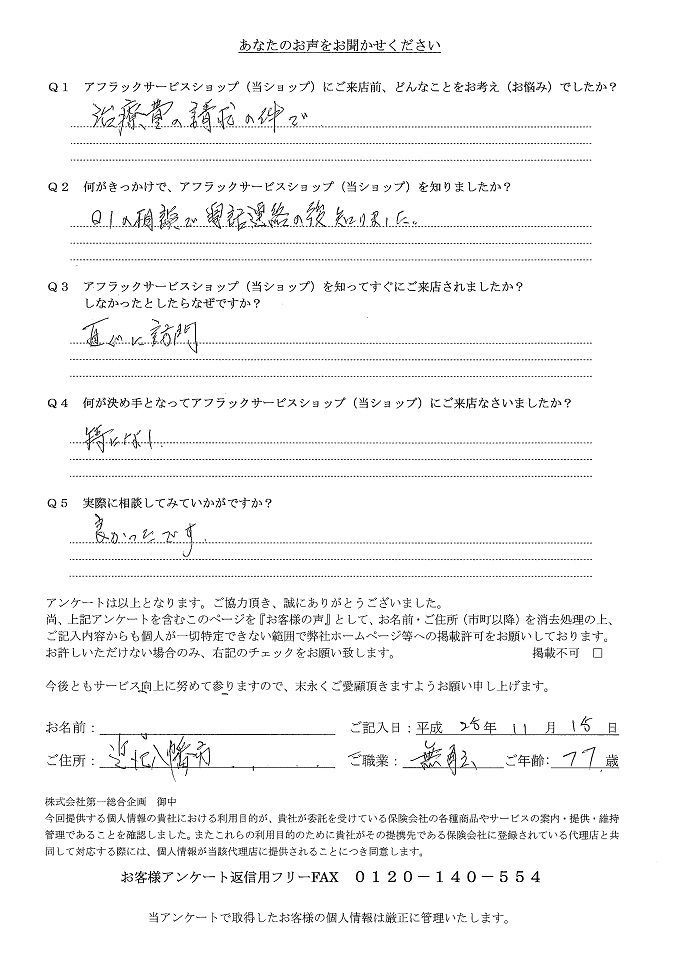 あなたのお声をお聞かせください
Q1 アフラックサービスショップ（当ショップ）にご来店前、どんなことをお考え（お悩み）でしたか？
治療費の請求の件で
Q2 何がきっかけで、アフラックサービスショップ（当ショップ）を知りましたか？
Q1の相談で電話連絡の後知りました。
Q3 アフラックサービスショップ（当ショップ）を知ってすぐにご来店されましたか？
しなかったとしたらなぜですか？
直ぐに訪門
Q4 何が決め手となってアフラックサービスショップ（当ショップ）にご来店なさいましたか？
特になし
Q5 実際に相談してみていかがですか？
良かったです.
アンケートは以上となります。ご協力頂き、誠にありがとうございました。
尚、上記アンケートを含むこのページを『お客様の声』として、お名前・ご住所（市町以降）を消去処理の上、
ご記入内容からも個人が一切特定できない範囲で弊社ホームページ等への掲載許可をお願いしております。
お許しいただけない場合のみ、右記のチェックをお願い致します。 掲載不可 □
今後ともサービス向上に努めて参りますので、末永くご愛顧頂きますようお願い申し上げます。
お名前： ご記入日：平成 25年 11 月 15 日
ご住所： 近江八幡市 ご職業： 無職 ご年齢： 77 歳
株式会社第一総合企画 御中
今回提供する個人情報の貴社における利用目的が、貴社が委託を受けている保険会社の各種商品やサービスの案内・提供・維持
管理であることを確認しました。またこれらの利用目的のために貴社がその提携先である保険会社に登録されている代理店と共
同して対応する際には、個人情報が当該代理店に提供されることにつき同意します。
お客様アンケート返信用フリーFAX 0120－140－554
当アンケートで取得したお客様の個人情報は厳正に管理いたします。